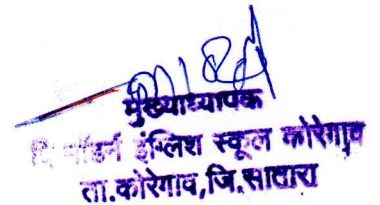 मुख्याध्यापक
दि मॉडर्न इंग्लिश स्कूल कोरेगाव
ता.कोरेगाव,जि.सातारा